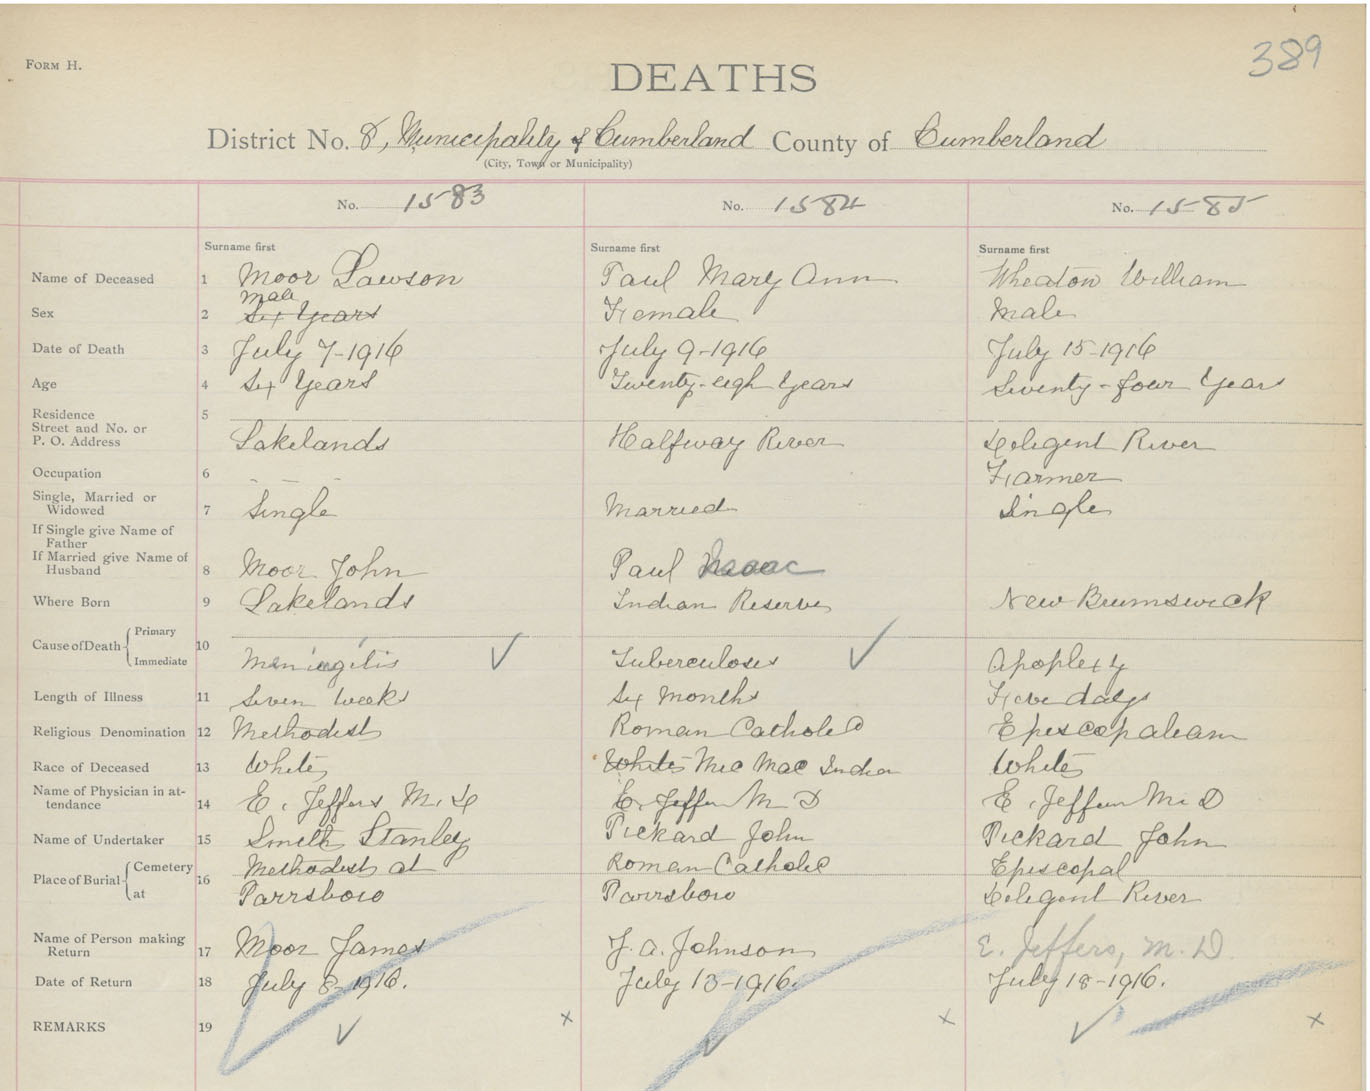 FORM H.
389
DEATHS
District No. 8, Municipality of Cumberland County of Cumberland
(City, Town or Municipality)
No. 1583 No. 1584 No. 1585
Surname first Surname first Surname first
Name of Deceased 1 Moor Lawson Paul Mary Ann Wheaton William
Male
Sex 2 Six Years Female Male
Date of Death 3 July 7-1916 July 9-1916 July 15-1916
Age 4 Six Years Twenty-eigh Years Seventy-four Years
Residence 5
Street and No. or
P. O. Address Lakelands Halfway River Deligent River
Occupation 6 - - - Farmer
Single, Married or
Widowed 7 Single Married Single
If Single give Name of
Father
If Married give Name of
Husband 8 Moor John Paul Isaac
Where Born 9 Lakelands Indian Reserve New Brumswick
Cause of Death { Primary 10
Immediate Meningitis ✓ Tuberculosis ✓ Apoplexy
Length of Illness 11 Seven weeks Six Months Five days
Religious Denomination 12 Methodist Roman Catholic Episcopaleam
Race of Deceased 13 White White Mic Mac Indian White
Name of Physician in at-
tendance 14 E. Jeffers M.D E. Jeffers M D E. Jeffers M. D
Name of Undertaker 15 Smith Stanley Pickard John Pickard John
Place of Burial { Cemetery 16 Methodist at Roman Catholic Episcopal
at Parrsboro Parrsboro Deligent River
Name of Person making
Return 17 Moor James J. A. Johnson E. Jeffers, M. D.
Date of Return 18 July 8-1916. July 13-1916. July 18-1916.
REMARKS 19 ✓ x ✓ x ✓ x